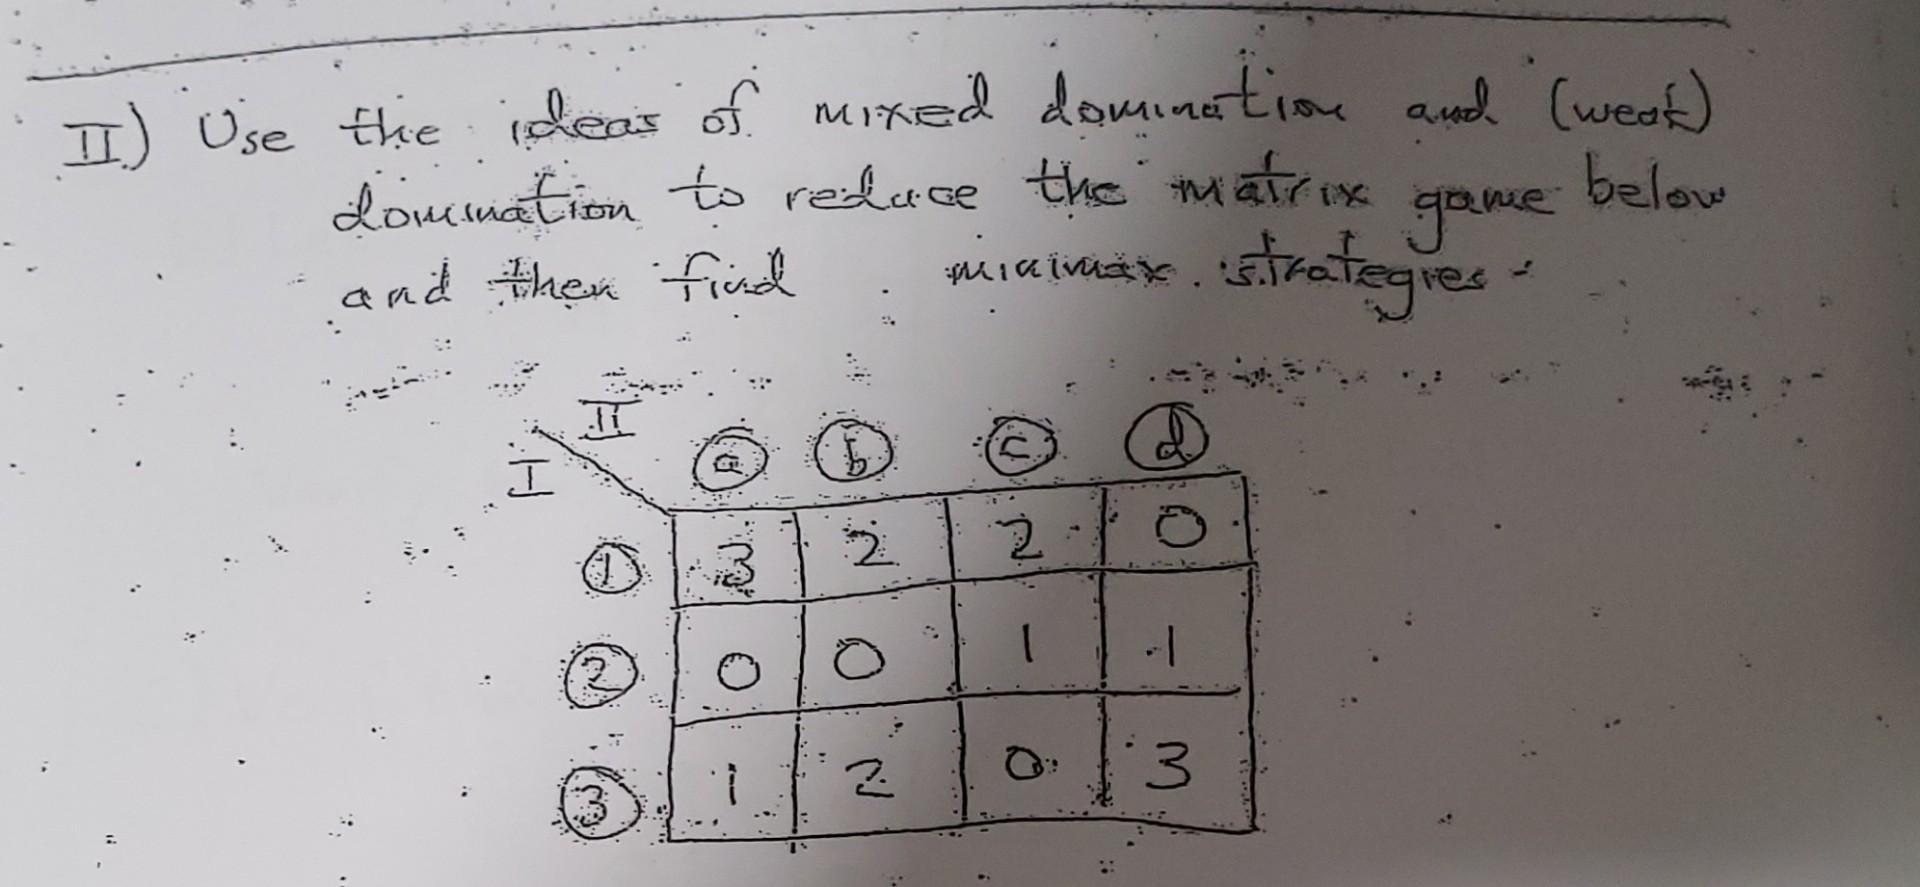 II) Use the ideas of mixed domination and (weak)
domination to reduce the matrix game below
and then find minimax strategies.
II
I
a b c d
1 3 2 2 0
2 0 0 1 1
3 1 2 0 3